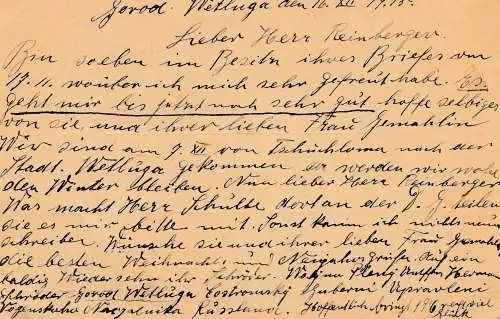 Gorod. Wetluga den 16. XII 1915.
Lieber Herr Reinberger.
Bin soeben im Besitz ihres Briefes vom
19.11. worüber ich mich sehr gefreut habe. Es
geht mir bis jetzt noch sehr gut hoffe selbiges
von sie, und ihrer lieben Frau Gemahlin
Wir sind am 9. XII von Tschuchloma nach der
Stadt. Wetluga gekommen werden wir wohl
den Winter bleiben. Nun lieber Herr Reinberger
Was macht Herr Schulte dort an der teilen
sie es mir bitte mit. Sonst kann ich nichts neues
schreiben. Wünsche sie und ihrer lieben Frau Gemahlin
die besten Weihnachts und Neujahrs Grüße. Auf ein
baldig Wiedersehn ihr Schröder. Herman
Schröder Gorod Wetluga Costromsky Guberni Upravleni
Natzalnika Russland. Hoffentlich bringt 1916